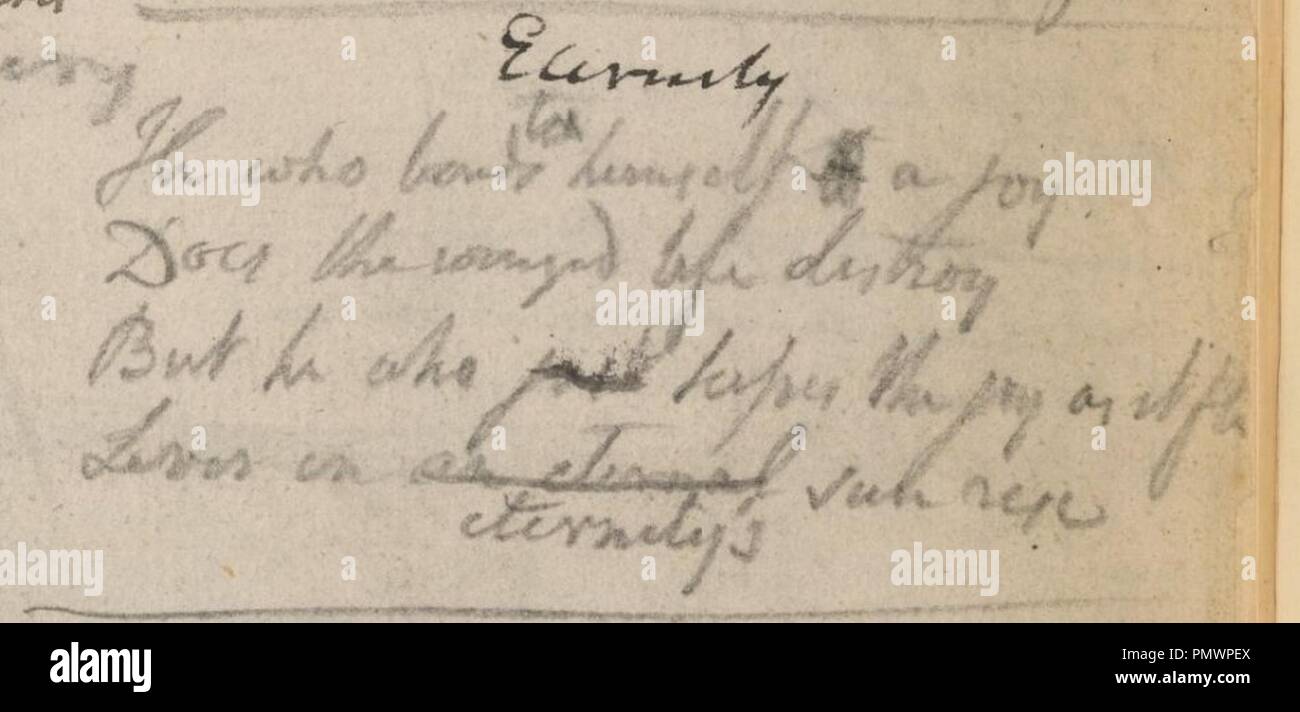 Eternity
to
He who binds himself a joy
Does the winged life destroy
But he who just kisses the joy as it flies
Lives in an eternal sun rise
eternity's
alamy
Image ID: PMWPEX
www.alamy.com